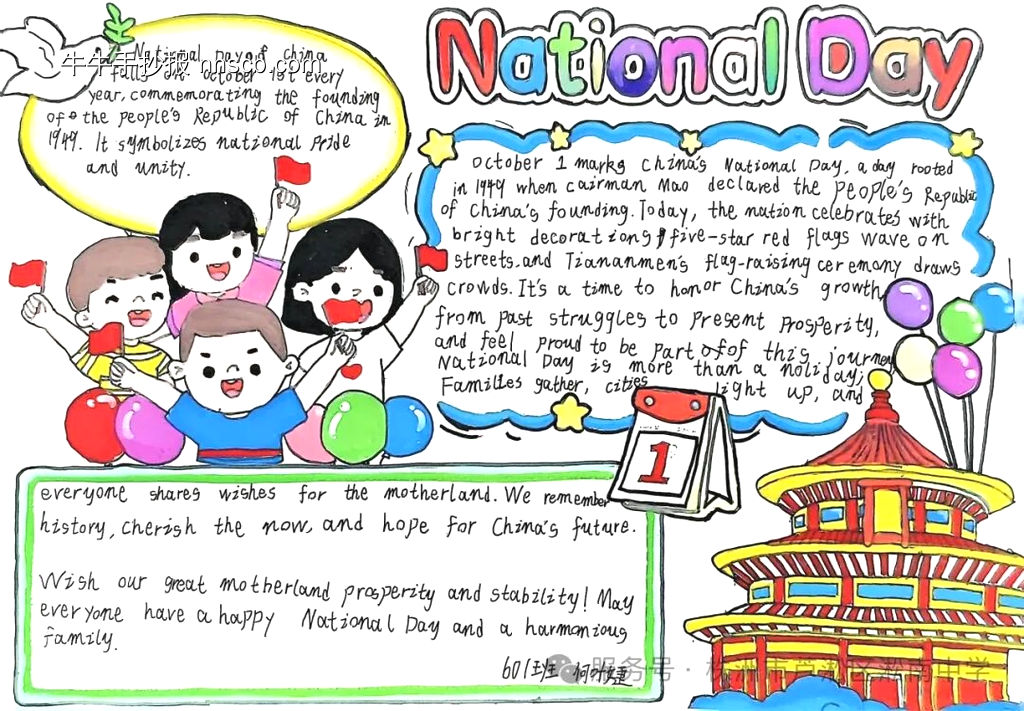 National Day
National Day of China
falls on October 1st every
year, commemorating the founding
of the people's Republic of China in
1949. It symbolizes national pride
and unity.
牛牛手抄报 nnscb.com
October 1 marks China's National Day, a day rooted
in 1949 when cairman Mao declared the people's Republic
of China's founding. Today, the nation celebrates with
bright decorations, five-star red flags wave on
streets. and Tiananmen's flag-raising ceremony draws
crowds. It's a time to honor China's growth
from past struggles to present prosperity,
and feel proud to be part of of this journey
National Day is more than a holiday;
Families gather, cities light up, and
1
everyone shares wishes for the motherland. We remember
history, cherish the now, and hope for China's future.
Wish our great motherland prosperity and stability! May
everyone have a happy National Day and a harmonious
family.
601班 何
服务号 · 株洲市芦淞区淞南中学